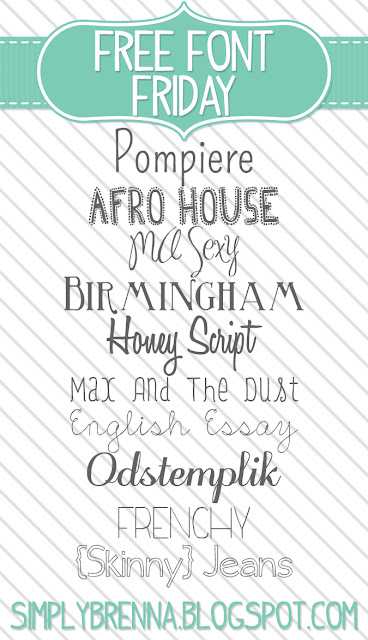 FREE FONT
FRIDAY
Pompiere
AFRO HOUSE
MA Sexy
BIRMINGHAM
Honey Script
Max And The Dust
English Essay
Odstemplik
FRENCHY
{Skinny} Jeans
SIMPLYBRENNA.BLOGSPOT.COM